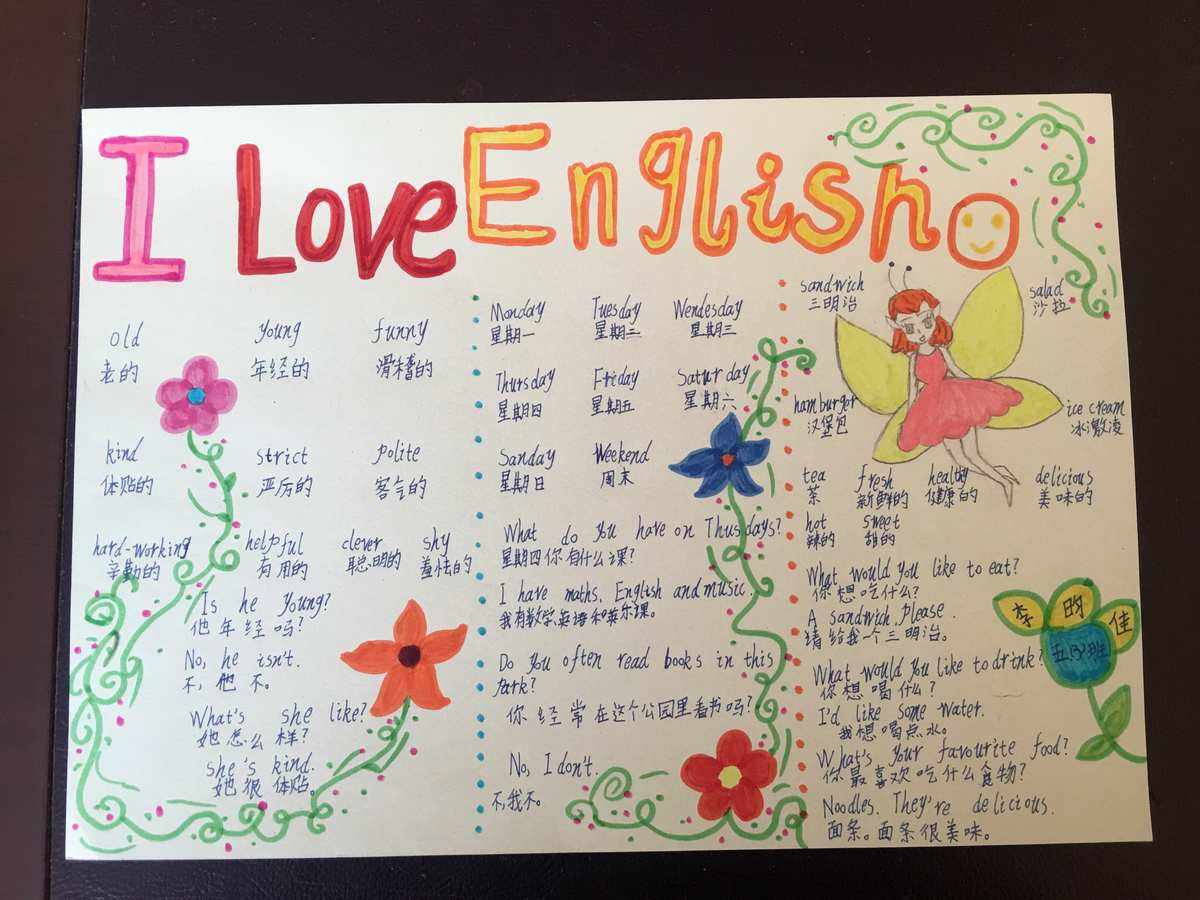 I Love English
old young funny
老的 年经的 滑稽的
kind strict polite
体贴的 严厉的 客气的
hard-working helpful clever shy
辛勤的 有用的 聪明的 羞怯的
Is he young?
他年经吗?
No, he isn't.
不,他不。
What's she like?
她怎么样?
she's kind.
她很体贴。
Monday Tuesday Wendesday
星期一 星期二 星期三
Thursday Friday Saturday
星期四 星期五 星期六
Sanday Weekend
星期日 周末
What do you have on Thusdays?
星期四你有什么课?
I have maths, English and music.
我有数学,英语和音乐课。
Do you often read books in this
park?
你经常在这个公园里看书吗?
No, I don't.
不,我不。
sandwich salad
三明治 沙拉
hamburger ice cream
汉堡包 冰激凌
tea fresh healthy delicious
茶 新鲜的 健康的 美味的
hot sweet
辣的 甜的
What would you like to eat?
你想吃什么?
A sandwich, please.
请给我一个三明治。
What would you like to drink?
你想喝什么?
I'd like some water.
我想喝点水。
What's your favourite food?
你最喜欢吃什么食物?
Noodles. They're delicious.
面条。面条很美味。
李 昀 佳